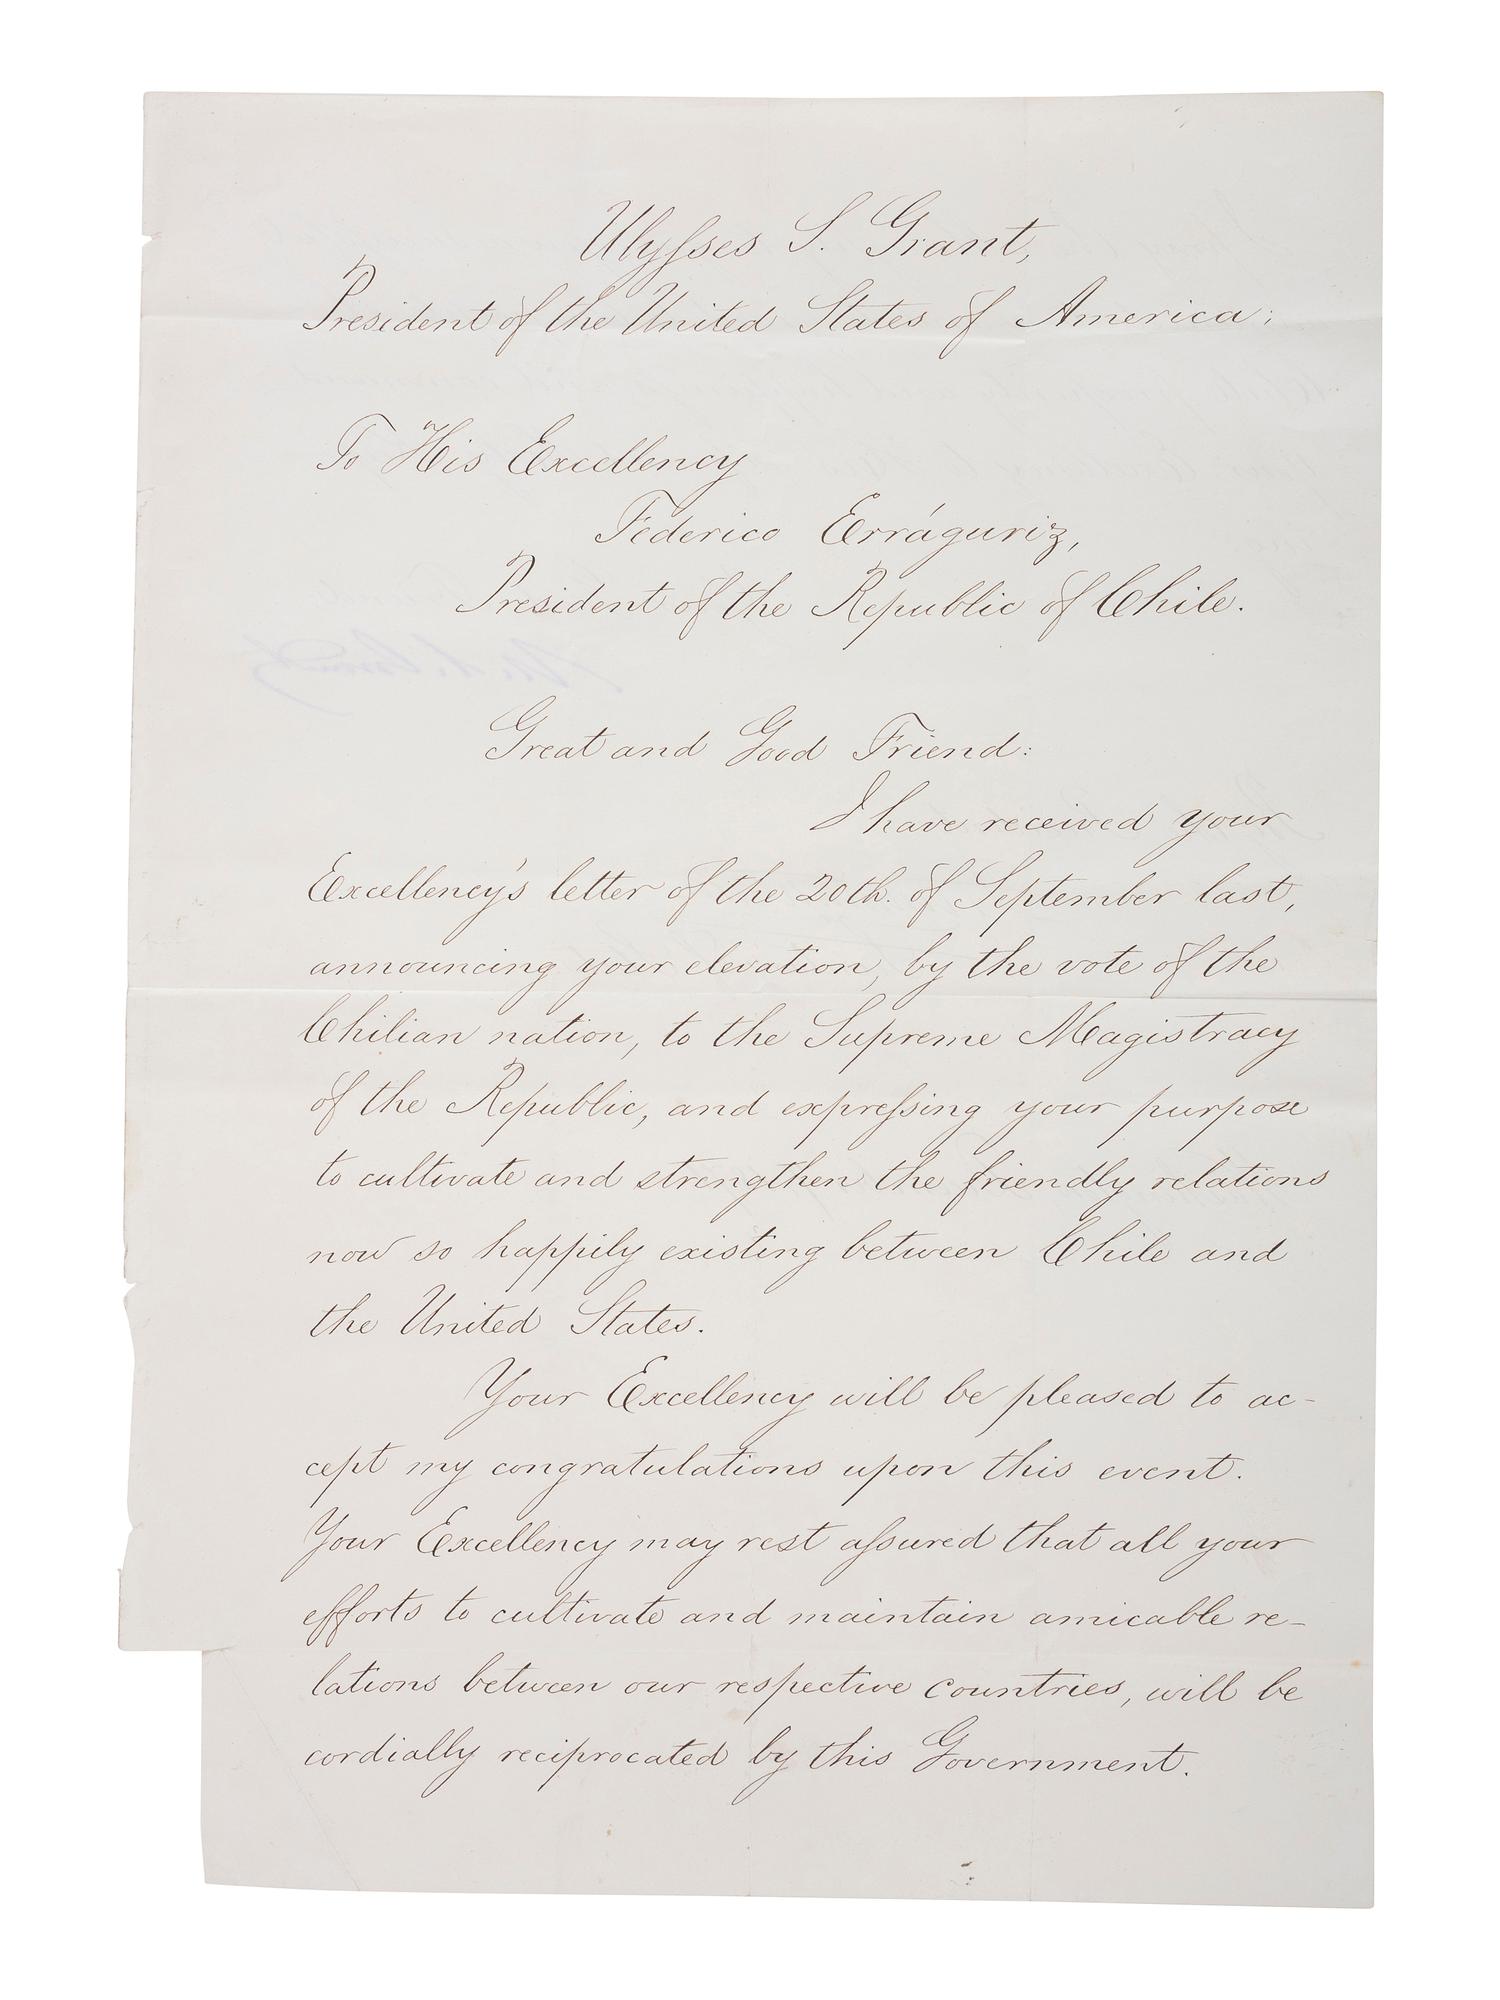 Ulysses S. Grant,
President of the United States of America;
To His Excellency
Federico Erráguriz,
President of the Republic of Chile.
Great and Good Friend:
I have received your
Excellency's letter of the 20th. of September last,
announcing your elevation, by the vote of the
Chilian nation, to the Supreme Magistracy
of the Republic, and expressing your purpose
to cultivate and strengthen the friendly relations
now so happily existing between Chile and
the United States.
Your Excellency will be pleased to ac-
cept my congratulations upon this event.
Your Excellency may rest assured that all your
efforts to cultivate and maintain amicable re-
lations between our respective countries, will be
cordially reciprocated by this Government.